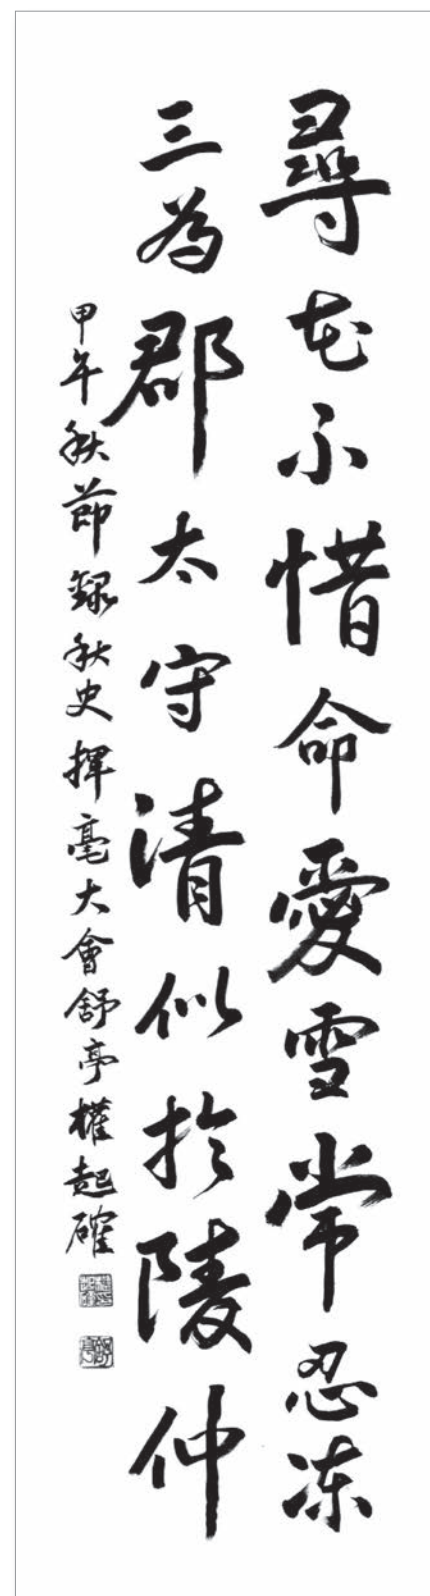 尋花不惜命愛雪常忍凍
三為郡太守清似於陵仲
甲午秋節錄秋史揮毫大會舒亭權起確